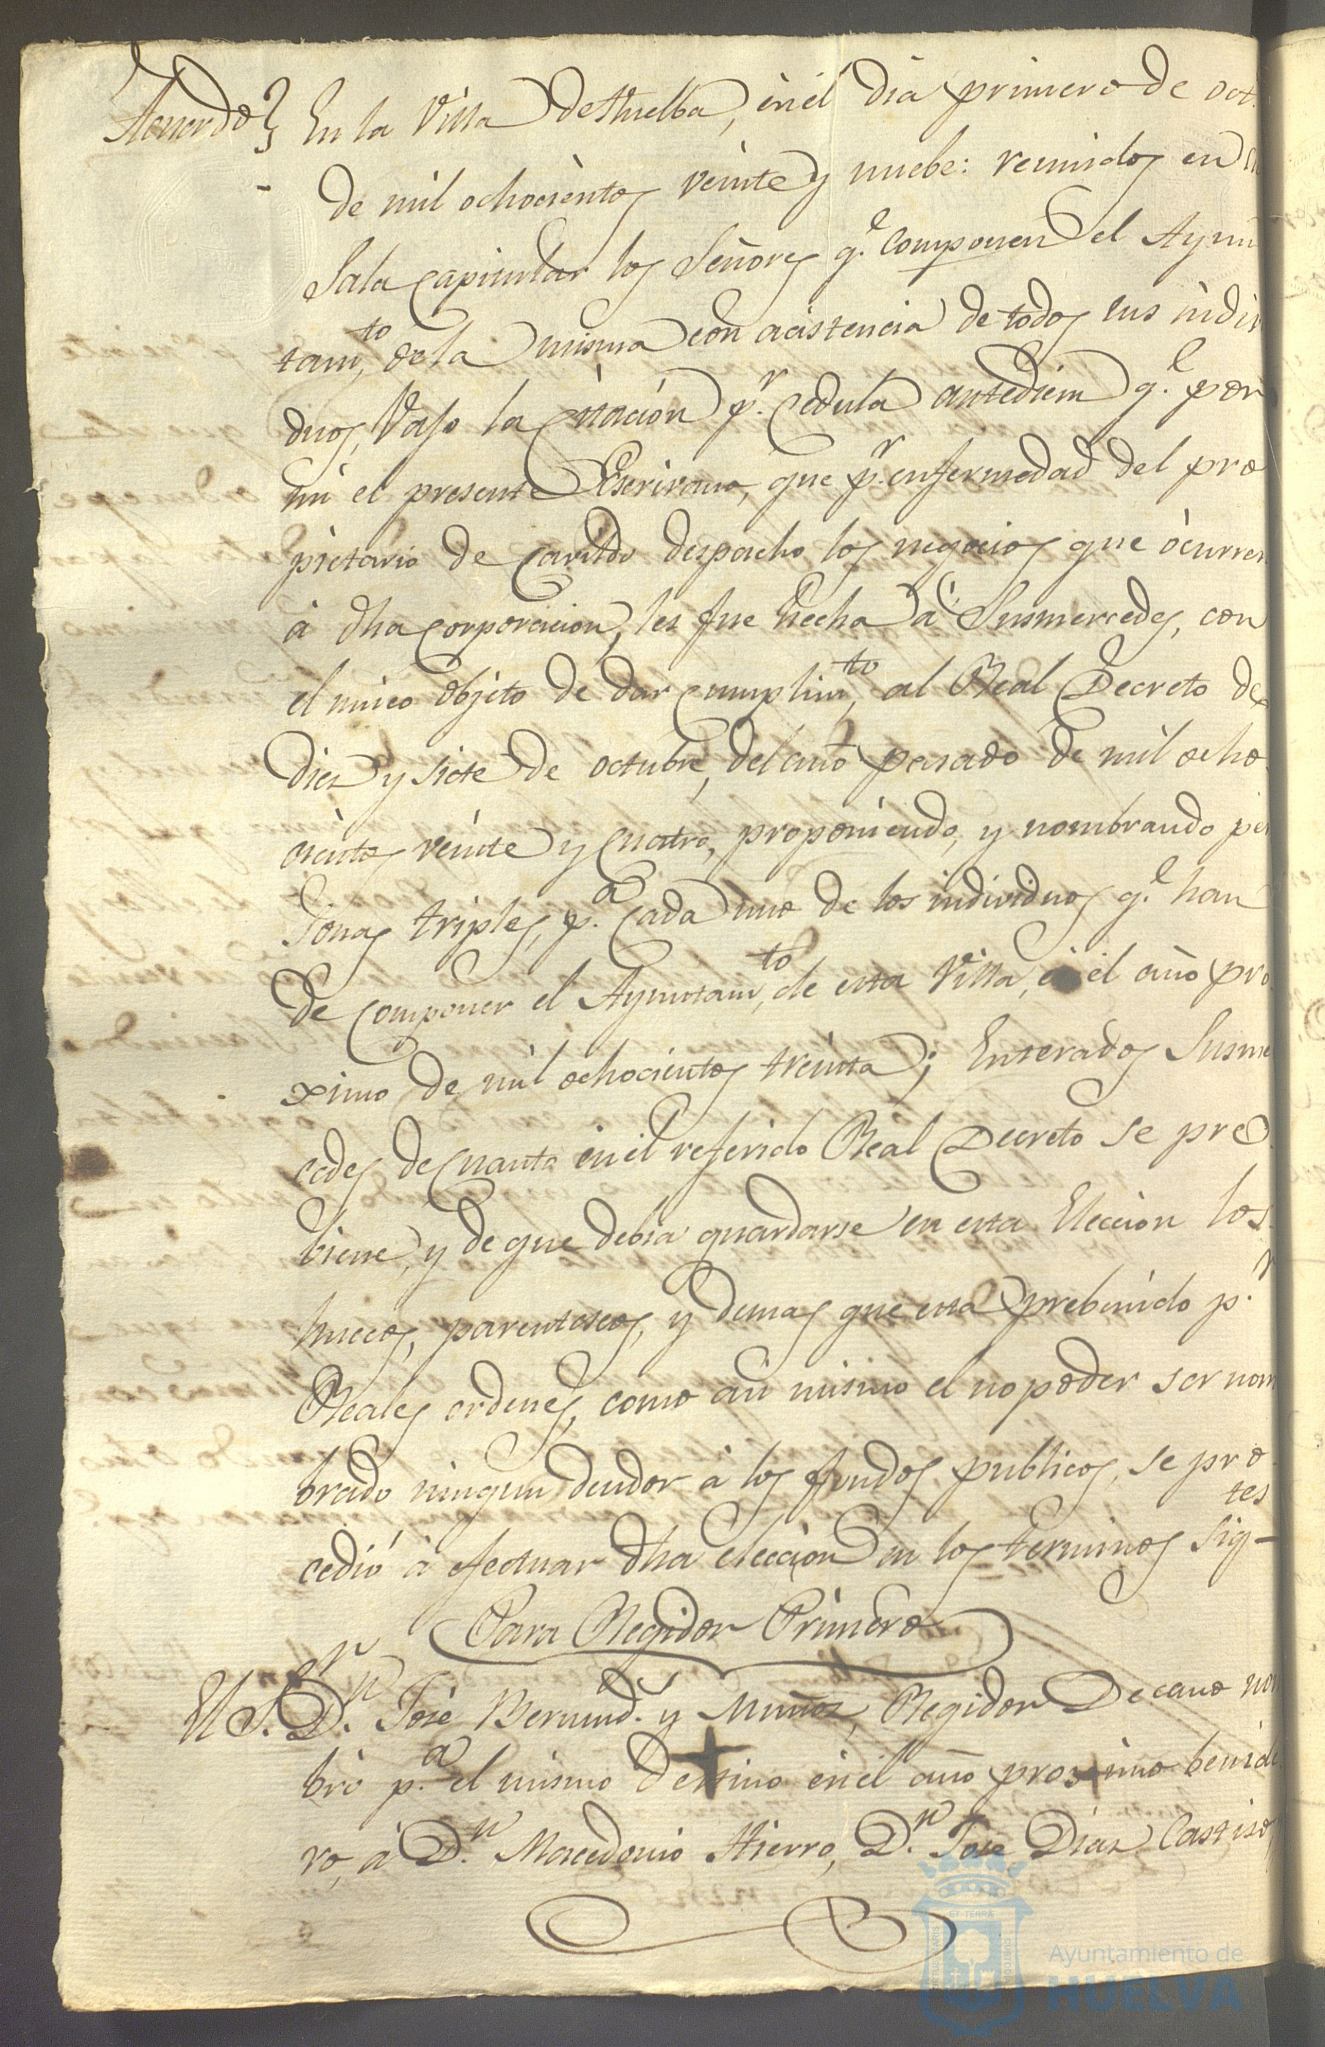 Acuerdo} En la Villa de Huelba, en el dia primero de oct.
de mil ochocientos veinte y nuebe: reunidos en su
Sala Capitular los Señores q.e componen el Ayun
tam.to de la misma con acistencia de todos sus indivi
duos, vajo la citación p.r cedula antediem q.e por
mi el presente Escrivano, que p.r enfermedad del pro
pietario de Cavildo despacho los negocios que òcurren
à dha corporacion, les fue hecha à Susmercedes, con
el unico objeto de dar cumplim.to al Real Decreto de
Diez y siete de octubre, del año pasado de mil ocho
cientos veinte y cuatro, proponiendo, y nombrando per
sonas triples, p.a cada uno de los individuos q.e han
de componer el Ayuntam.to de esta Villa, en el año pro
ximo de mil ochocientos treinta; Enterados Susmer
cedes de cuanto en el referido Real Decreto se pre
biene, y de que debia guardarse en esta Eleccion los
huecos, parentescos, y demas que esta prebenido p.r
Reales ordenes, como asi mismo el no poder ser nom
brado ningun deudor à los fondos publicos, se pro
cedió à efectuar dha eleccion en los terminos sig-tes
Para Regidor Primero
El S.or D.n José Bermud.z y Muñoz, Regidor Decano nom
bró p.a el mismo destino en el año proximo benide
ro, à D.n Macedonio Hierro, D.n José Diaz Castiso,
Ayuntamiento de
HUELVA